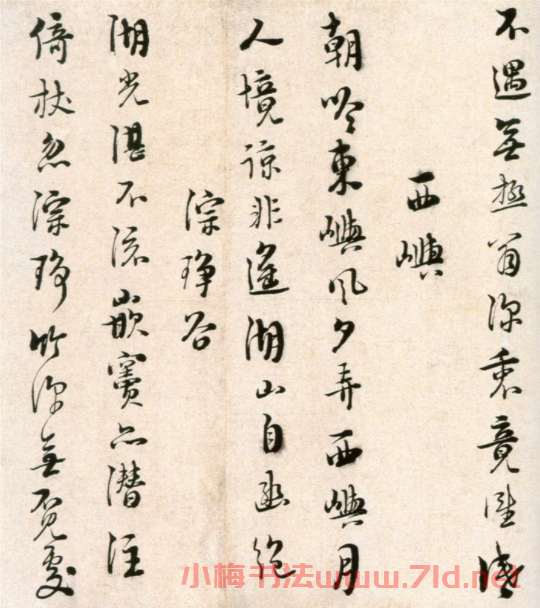 不遇無極翁深衷竟誰識
西嶼
朝吟東嶼風夕弄西嶼月
人境諒非遙湖山自幽絕
淙琤谷
湖光湛不流嵌竇亦潛注
倚杖忽淙琤竹深無覓處
小梅书法www.7ld.net